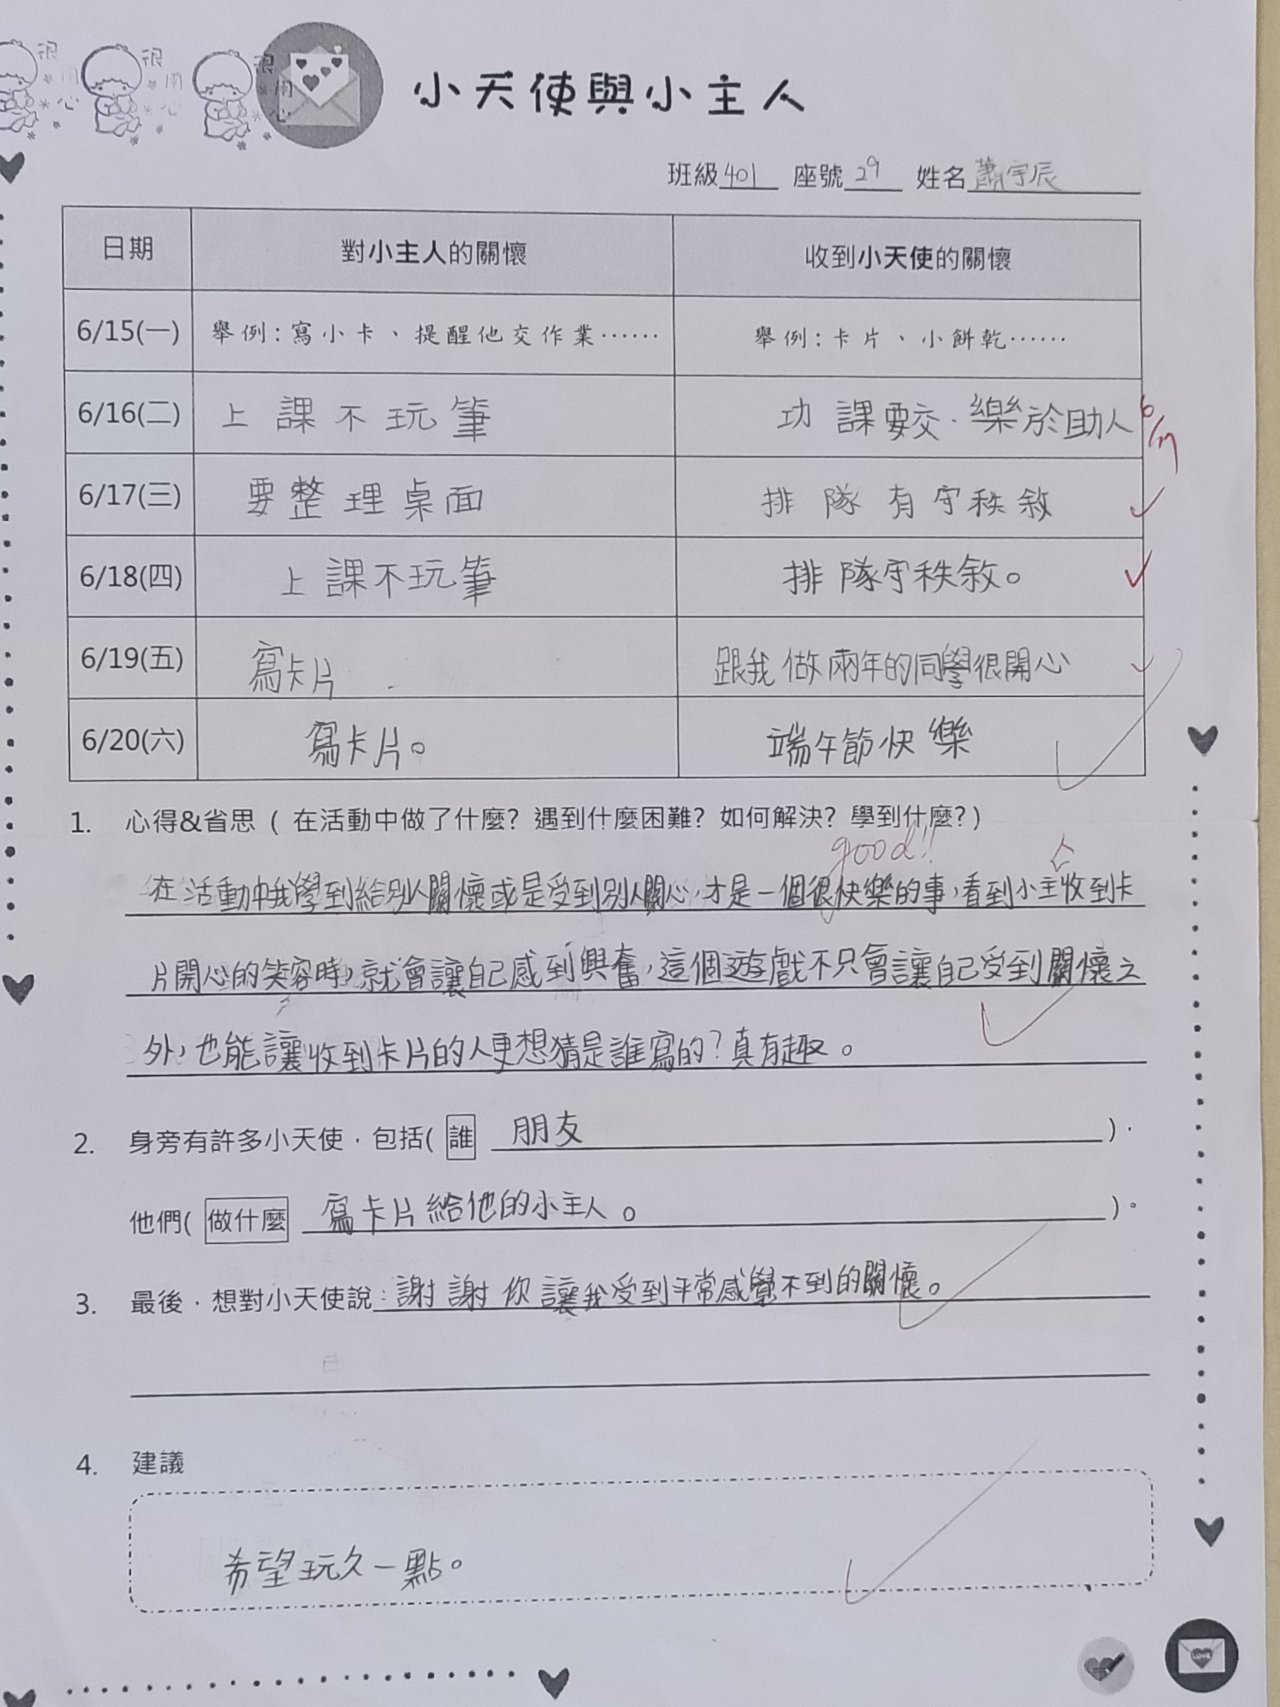 很用心 很用心 很用心
小天使與小主人
班級 401 座號 29 姓名 蕭宇辰
日期 對小主人的關懷 收到小天使的關懷
6/15(一) 舉例:寫小卡、提醒他交作業…… 舉例:卡片、小餅乾……
6/16(二) 上課不玩筆 功課要交.樂於助人 6/17
6/17(三) 要整理桌面 排隊有守秩敘
6/18(四) 上課不玩筆 排隊守秩敘。
6/19(五) 寫卡片 跟我做兩年的同學很開心
6/20(六) 寫卡片。 端午節快樂
1. 心得&省思（在活動中做了什麼? 遇到什麼困難? 如何解決? 學到什麼?）
good!!
在活動中我學到給別人關懷或是受到別人關心,才是一個很快樂的事,看到小主人收到卡
片開心的笑容時,就會讓自己感到興奮,這個遊戲不只會讓自己受到關懷之
外,也能讓收到卡片的人更想猜是誰寫的?真有趣。
2. 身旁有許多小天使，包括( 誰 朋友 )，
他們( 做什麼 寫卡片給他的小主人。 )。
3. 最後，想對小天使說: 謝謝你讓我受到平常感覺不到的關懷。
4. 建議
希望玩久一點。
LOVE